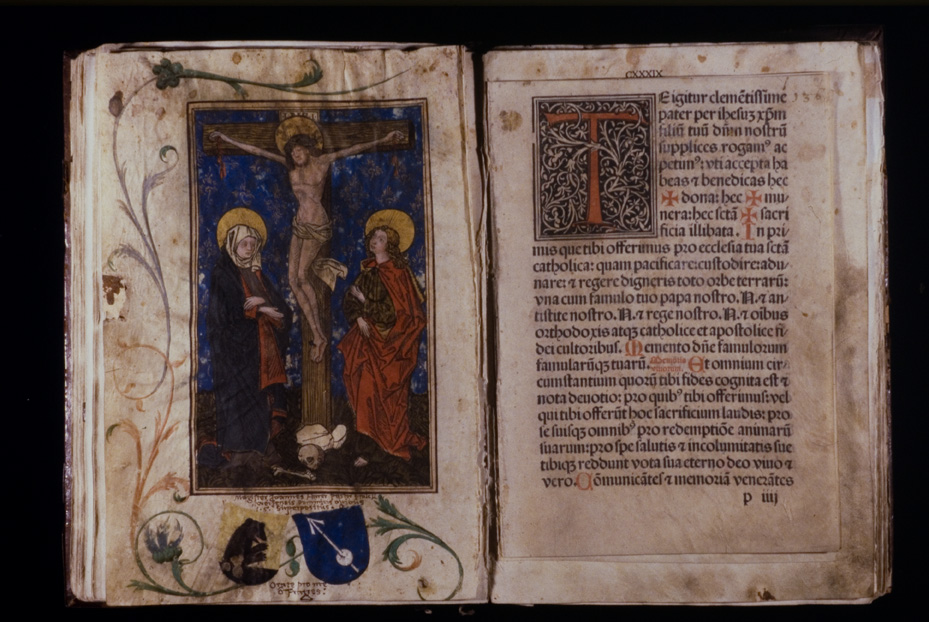 INRI
CXXXIX
136
TE igitur clemẽtissime
pater per ihesuz xp̃m
filiũ tuũ dñm nostrũ
supplices rogamꝰ ac
petimꝰ: vti accepta ha
beas ⁊ benedicas hec
✠ dona: hec ✠ mu/
nera: hec sctã ✠ sacri
ficia illibata. In pri/
mis que tibi offerimus pro ecclesia tua sctã
catholica: quam pacificare: custodire: adu/
nare: ⁊ regere digneris toto orbe terrarũ:
vna cum famulo tuo papa nostro. N. ⁊ an/
tistite nostro. N. ⁊ rege nostro. N. ⁊ oĩbus
orthodoxis atqꝫ catholice et apostolice fi/
dei cultoribus. Memento dñe famulorum
famularũqꝫ tuarũ. Et omnium cir/
cumstantium quorũ tibi fides cognita est ⁊
nota deuotio: pro quibꝰ tibi offerimus: vel
qui tibi offerũt hoc sacrificium laudis: pro
se suisqꝫ omnibꝰ pro redemptiõe animarũ
suarum: pro spe salutis ⁊ incolumitatis sue
tibiqꝫ reddunt vota sua eterno deo viuo ⁊
vero. Cõmunicãtes ⁊ memoriã venerãtes
p iiij